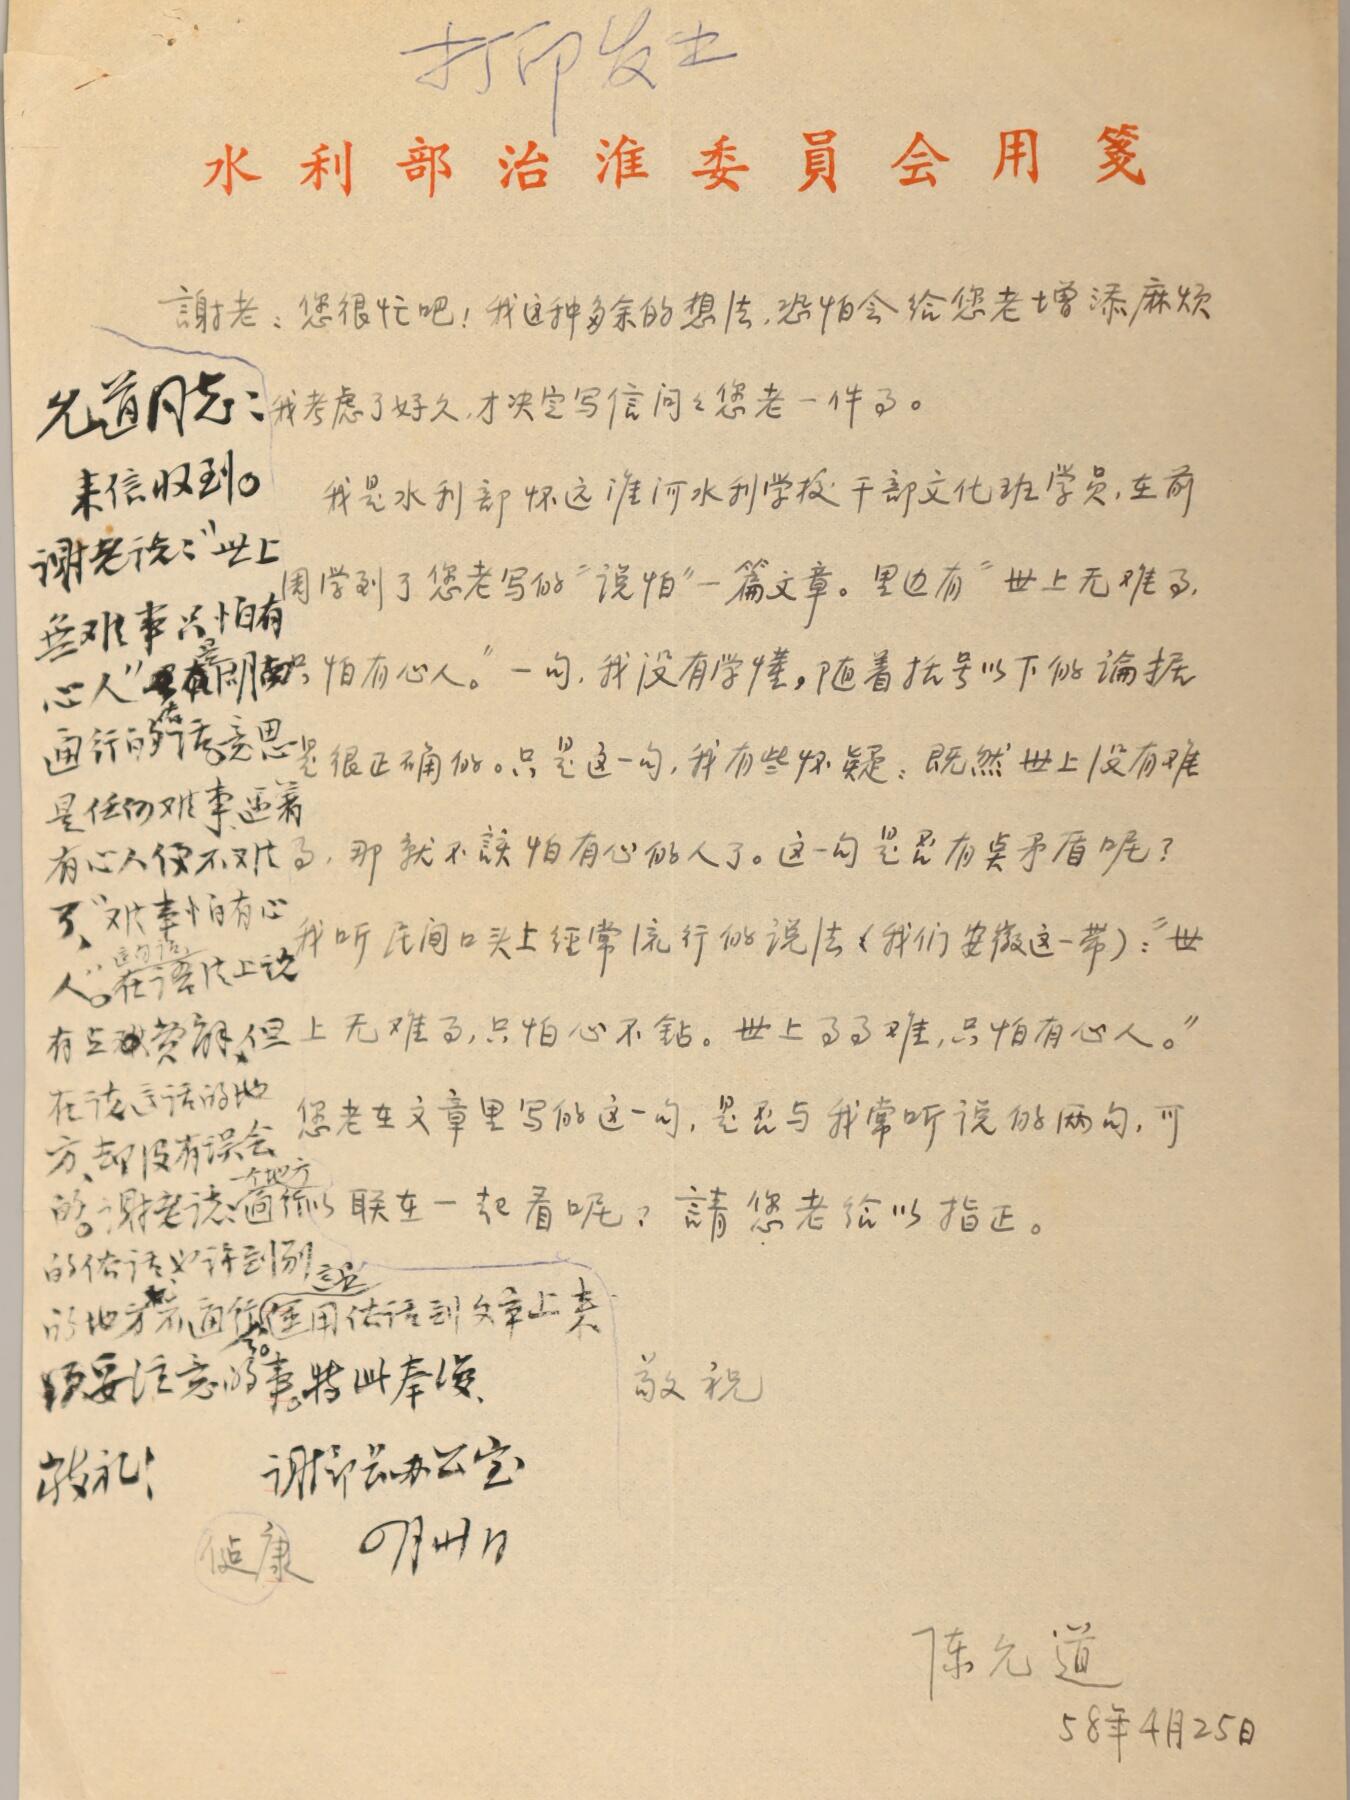 打印发出
水利部治淮委員会用箋
謝老：您很忙吧！我这种多余的想法，恐怕会给您老增添麻烦
我考虑了好久，才决定写信问々您老一件了。
我是水利部怀远淮河水利学校干部文化班学员，在前
周学到了您老写的“说怕”一篇文章。里边有“世上无难了，
只怕有心人。”一句，我没有学懂，随着括号以下的論据
是很正确的。只是这一句，我有些怀疑：既然世上没有难
了，那就不該怕有心的人了。这一句是否有矣矛盾呢？
我听民间口头上经常流行的说法（我们安徽这一带）：“世
上无难了，只怕心不钻。世上了了难，只怕有心人。”
您老在文章里写的这一句，是否与我常听说的两句，可
以联在一起看呢？請您老给以指正。
敬祝
健康
陈允道
58年4月25日
允道同志：
来信收到。
谢老说：“世上
無难事只怕有
心人”是
通行的古话，意思
是任何难事，遇着
有心人便不难
了，“难事怕有心
人”。这句话在语法上说
有点费解，但
在说这话的地
方，却没有误会
的。谢老说：一个地方通行
的俗话也许到别
的地方不通行，运用俗话到文章上来
须要注意的事。特此奉復、
敬礼！
谢部长办公室
四月卅日